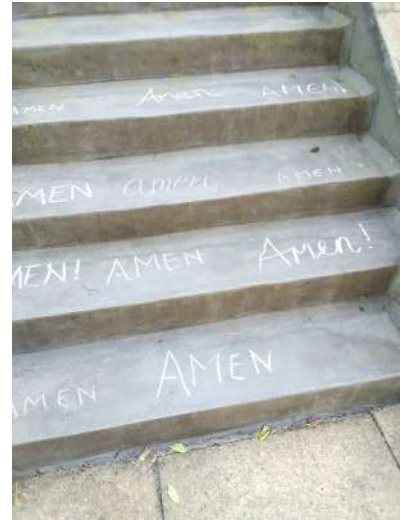 AMEN Amen AMEN!
AMEN amen AMEN
MEN! AMEN Amen!
AMEN AMEN